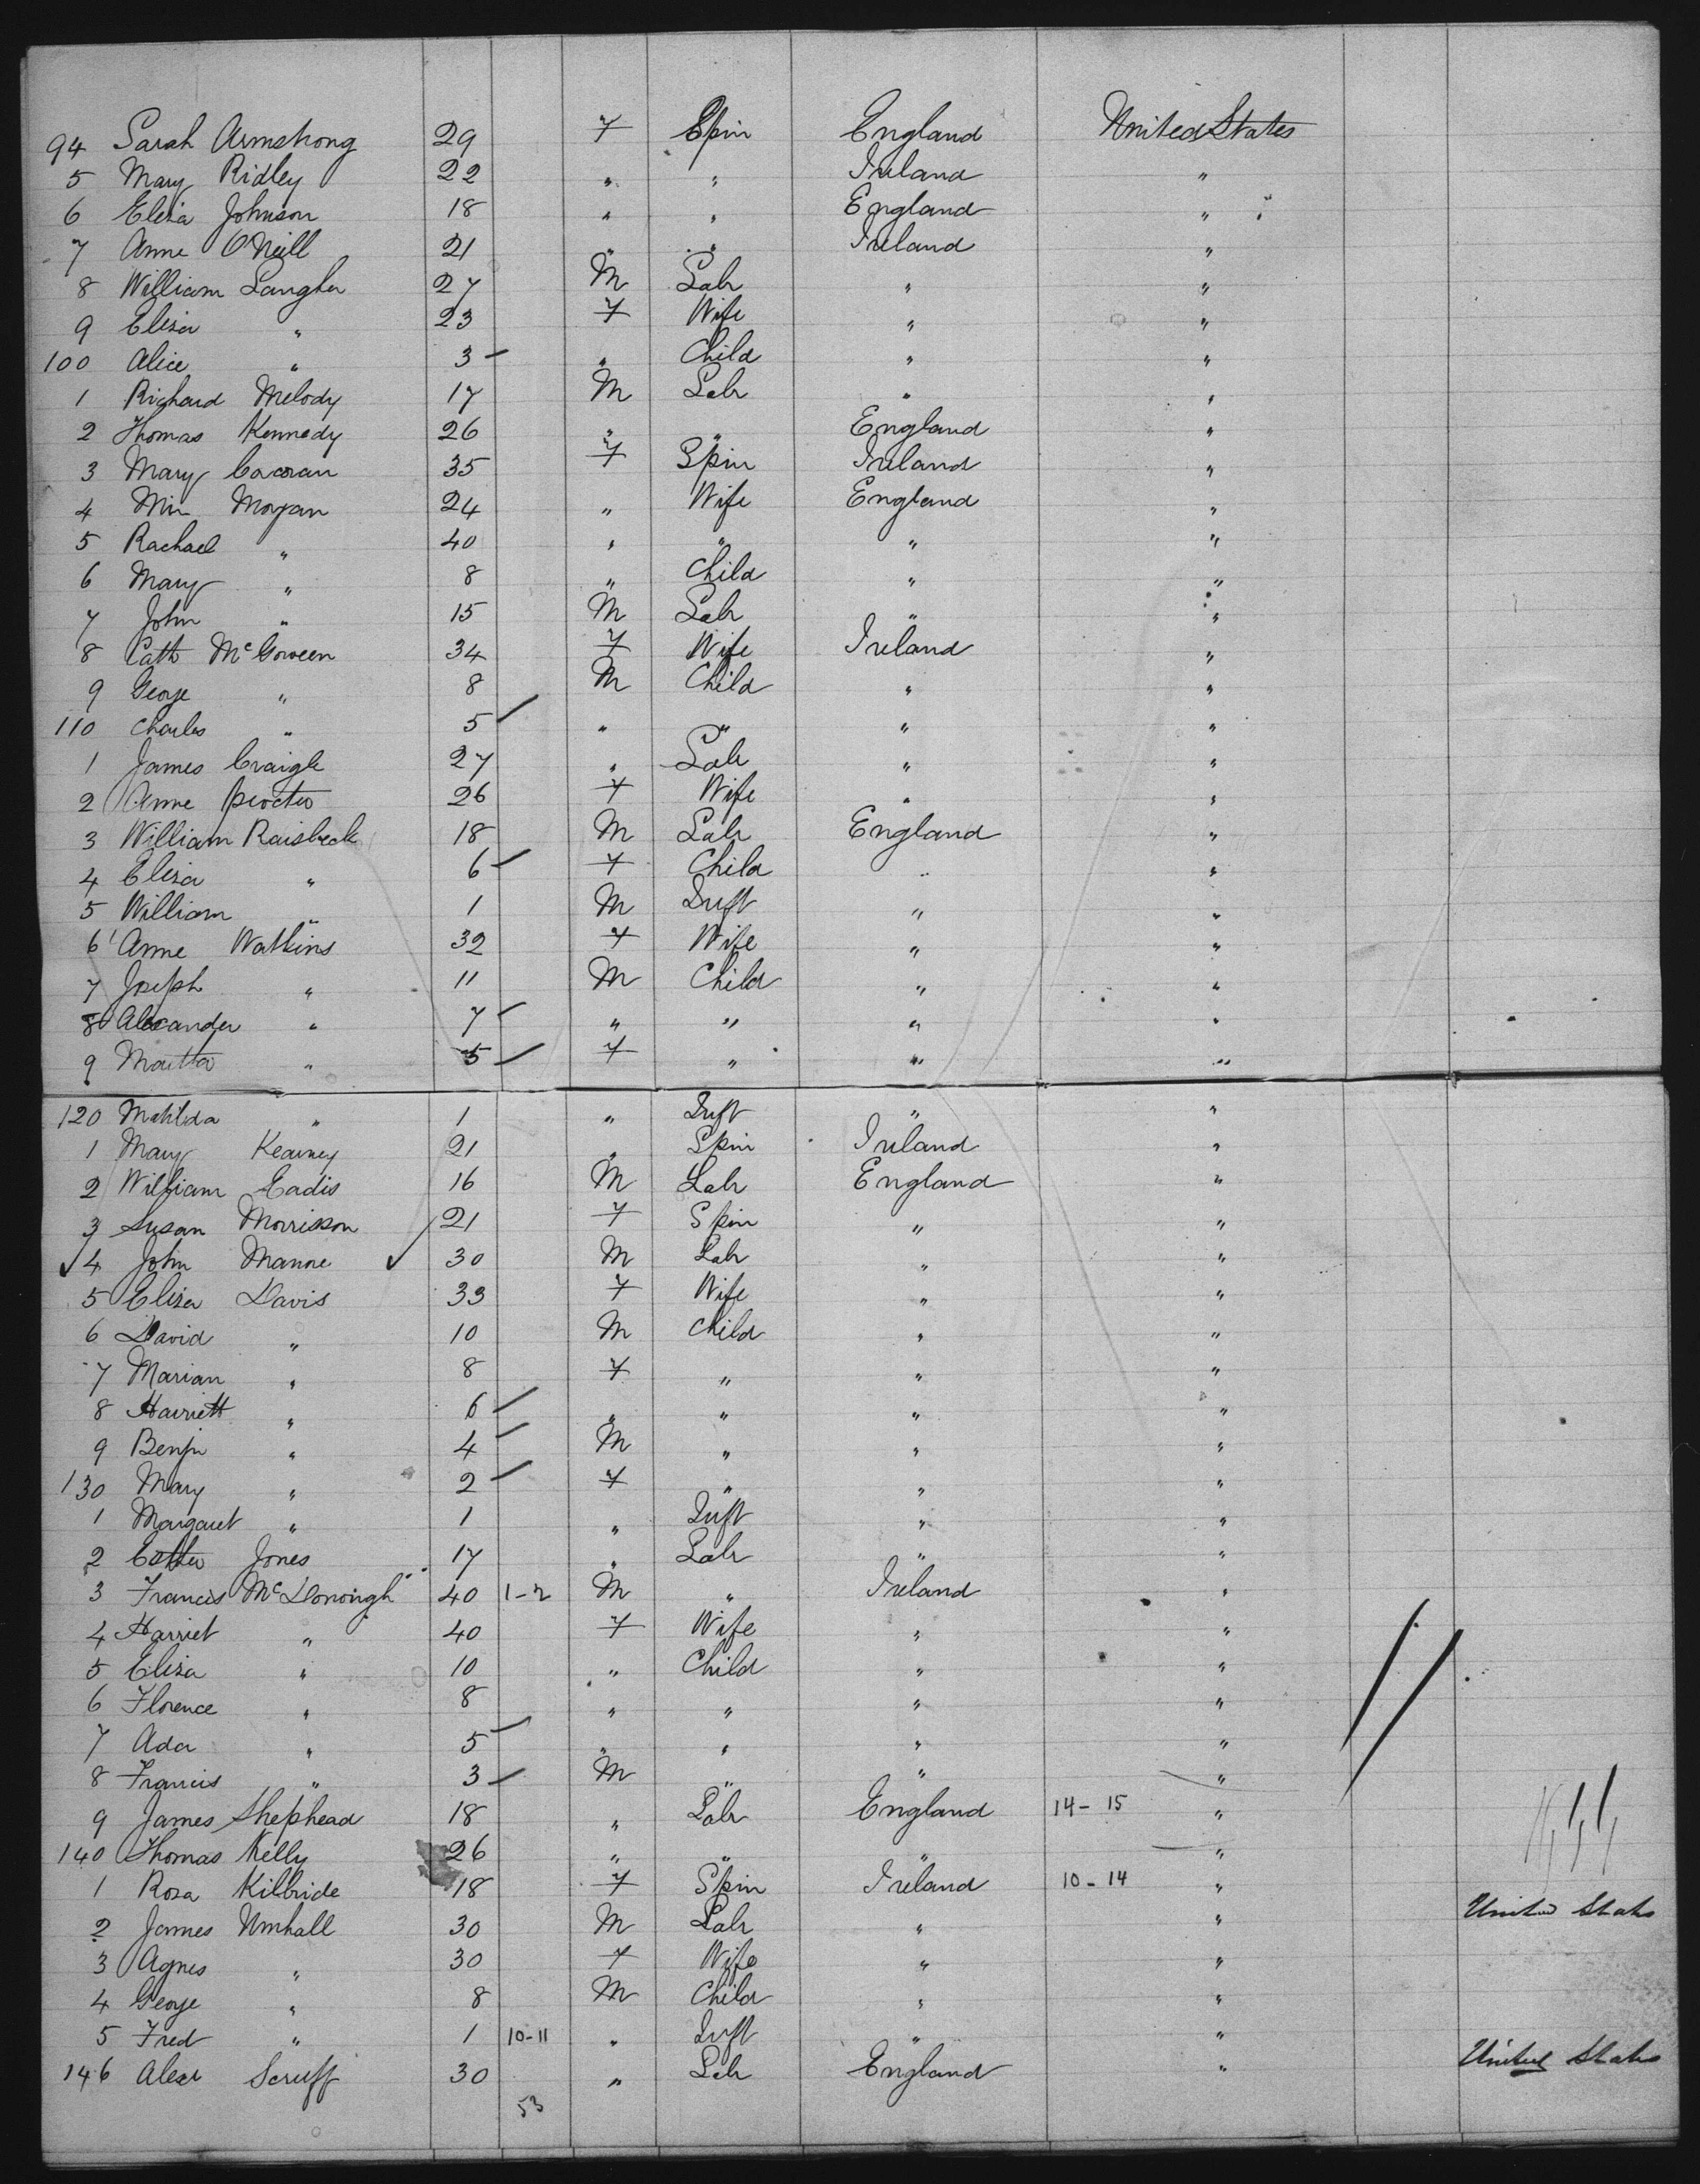 94 Sarah Armstrong 29 F Spin England United States
5 Mary Ridley 22 " " Ireland "
6 Eliza Johnson 18 " " England "
7 Anne O'Neill 21 " " Ireland "
8 William Langher 27 M Labr " "
9 Eliza " 23 F Wife " "
100 Alice " 3 " Child " "
1 Richard Melody 17 M Labr " "
2 Thomas Kennedy 26 " " England "
3 Mary Cocoran 35 F Spin Ireland "
4 Morgan 24 " Wife England "
5 Rachael " 40 " " " "
6 Mary " 8 " Child " "
7 John " 15 M Labr " "
8 Cath McGoween 34 F Wife Ireland "
9 George " 8 M Child " "
110 Charles " 5 " " " "
1 James Craigle 27 " Labr " "
2 Anne Procter 26 F Wife " "
3 William Raisbeck 18 M Labr England "
4 Eliza " 6 F Child " "
5 William " 1 M Inft " "
6 Anne Watkins 32 F Wife " "
7 Joseph " 11 M Child " "
8 Alexander " 7 " " " "
9 " 5 F " " "
120 Matilda " 1 " Inft " "
1 Mary Kearney 21 " Spin Ireland "
2 William Eadis 16 M Labr England "
3 Susan Morrisson 21 F Spin " "
4 John Manne 30 M Labr " "
5 Eliza Davis 33 F Wife " "
6 David " 10 M Child " "
7 Marian " 8 F " " "
8 Harriett " 6 " " " "
9 Benjn " 4 M " " "
130 Mary " 2 F " " "
1 Margaret " 1 " Inft " "
2 Esther Jones 17 " Labr " "
3 Francis McDonough 40 1-2 M " Ireland "
4 Harriet " 40 F Wife " "
5 Eliza " 10 " Child " "
6 Florence " 8 " " " "
7 Ada " 5 " " " "
8 Francis " 3 M " " "
9 James Shephead 18 " Labr England 14-15 "
140 Thomas Kelly 26 " " " "
1 Rosa Kilbride 18 F Spin Ireland 10-14 "
2 James Umhall 30 M Labr " " United States
3 Agnes " 30 F Wife " "
4 George " 8 M Child " "
5 Fred " 1 10-11 " Inft " "
146 Alexr Scruff 30 " Labr England " United States
53